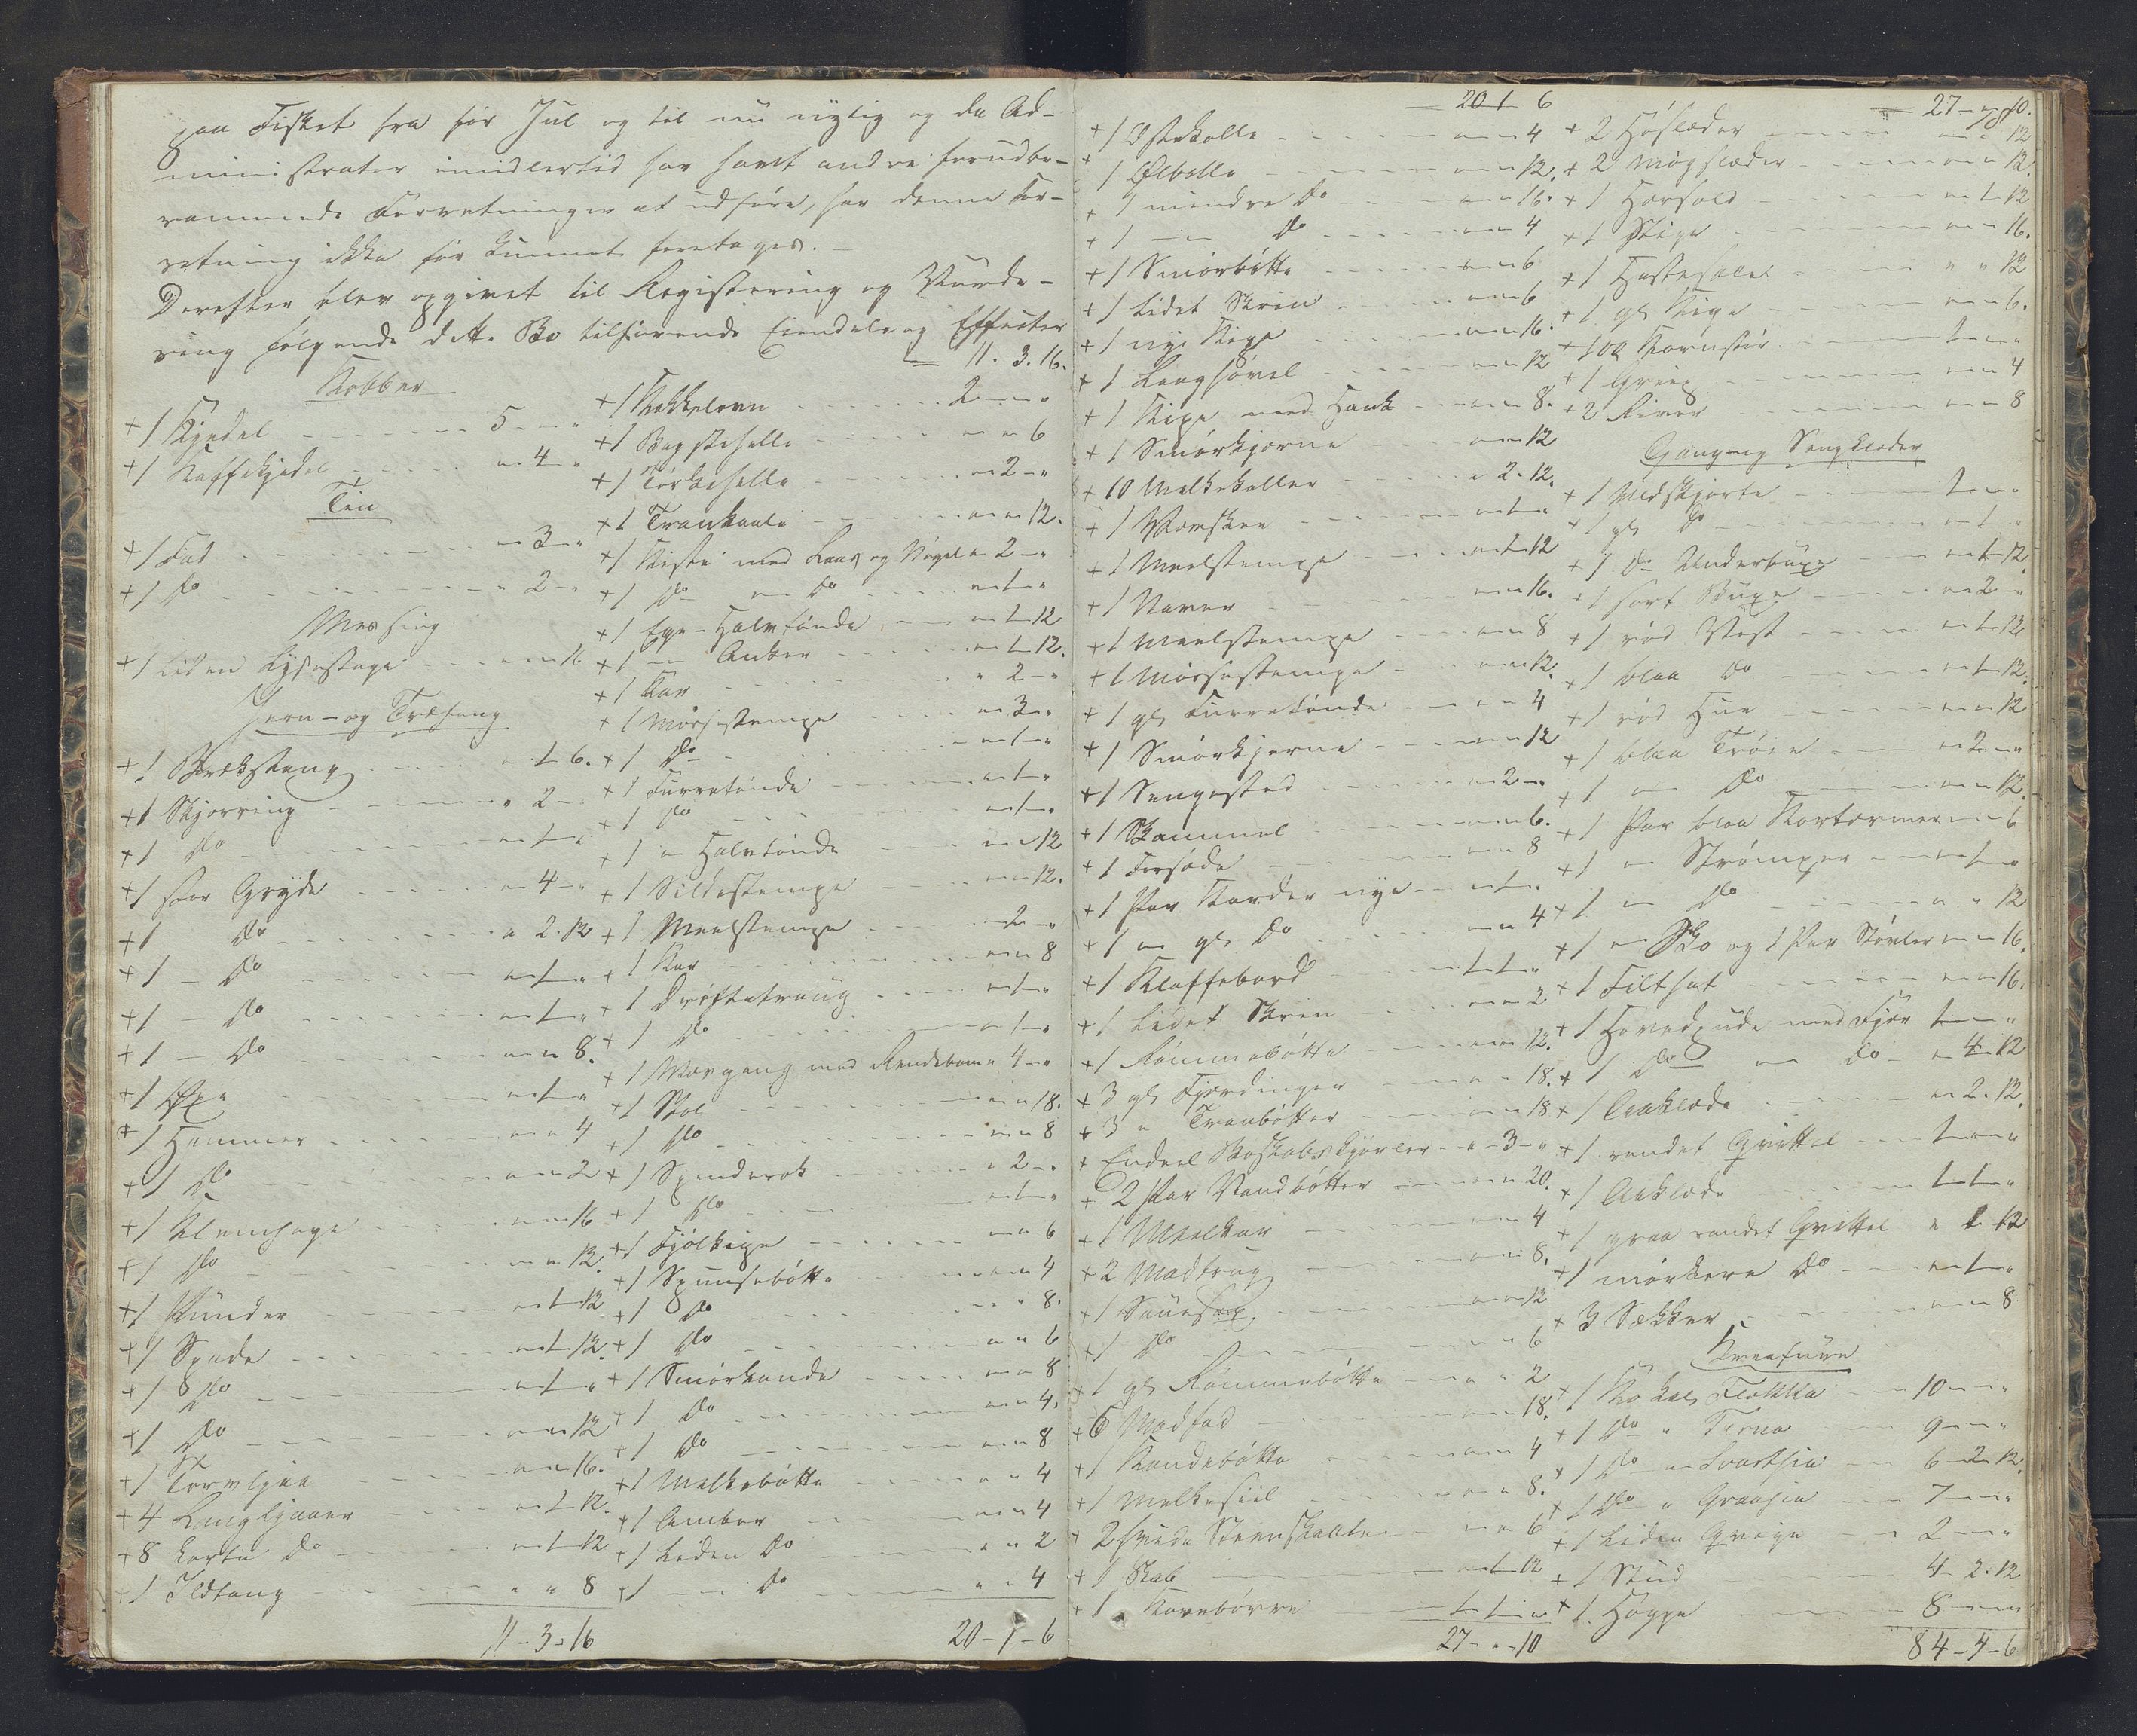 paa Fisket fra før Jul og til nu nylig og da Ad-
ministrator imidlertid har havt andre forudbe-
rammede Forretninger at udføre, har denne For-
retning ikke før kunnet foretages. -
Derefter blev opgivet til Registrering og Vurde-
ring følgende dette Bo tilhørende Eiendele og Effecter
Kobber
+ 1 Kjedel 5 - " - "
+ 1 Kaffekjedel " - 4 - "
Tin
+ 1 Fad " - 3 - "
+ 1 do " - 2 - "
Messing
+ 1 liden Lysestage " - " - 16
Jern- og Træfang
+ 1 Brækstang " - 1 - 6.
+ 1 Skjærring " - 2 - "
+ 1 do " - 1 - "
+ 1 stor Gryde " - 4 - "
+ 1 do " 2 - 12
+ 1 - do " - 1 - "
+ 1 - do " - 1 - "
+ 1 - do " - " 8.
+ 1 Øxe " - 1 - "
+ 1 Hammer " - " 4
+ 1 do " - " 2
+ 1 " - " 16
+ 1 do " - " 12.
+ 1 Bünder " - 1 - 12
+ 1 Spade " - 1 - 12.
+ 1 do " - 1 - "
+ 1 do " - " 12
+ 1 Torvljaa " - " 16.
+ 4 Langljaaer " - 1 - 12.
+ 8 korte do " - 1 - 12
+ 1 Ildtang " " 8
11 - 3 - 16
11. 3. 16.
+ 1 Kakkelovn 2 - " - "
+ 1 Bagstehelle " - " 6
+ 1 Tørkehelle " - 2 - "
+ 1 Trankade " - " 12.
+ 1 Kiste med Laas og Nøgel " 2 - "
+ 1 do " do " - 1 - "
+ 1 Ege-Halvtønde " - 1 - 12
+ 1 - Anker " - 1 - 12.
+ 1 Kar " 2 - "
+ 1 Mørjestampe " - 3 - "
+ 1 do " - 1 - "
+ 1 Furretønde " - 1 - "
+ 1 do " - 1 - "
+ 1 - Halvtønde " - " 12
+ 1 Sildestampe " - " 12.
+ 1 Meelstampe - 2 - "
+ 1 Kar " - " 8
+ 1 Drøftetraug " - 1 - "
+ 1 do " - 1 - "
+ 1 Vævgang med Rendebom " 4 - "
+ 1 Stol " - " 18.
+ 1 do " - " 8
+ 1 Spinderok " 2 - "
+ 1 do " - 1 - "
+ 1 Fjølkipe " - " 6
+ 1 Spunsebøtte " - " 4
+ 1 do " " 8.
+ 1 do " " 6
+ 1 Smørkande " " 8
+ 1 do " - " 4.
+ 1 do " - " 8
+ 1 Melkebøtte " - " 4
+ 1 Ambar " - " 4
+ 1 liden do " " 2
+ 1 - do " " 4
20 - 1 - 6
20 1 6
+ 1 Ostekolle " - " 4
+ 1 Ølbolle " - " 12.
+ 1 mindre do " - " 16.
+ 1 - do " - " 4
+ 1 Smørbøtte " - " 6
+ 1 lidet Skrin " - " 6
+ 1 nye Kipe " - " 16.
+ 1 Langhøvel " - " 12
+ 1 Kipe med Hank " - " 8.
+ 1 Smørkjerne " - " 12
+ 10 Melkekoller " 2 - 12.
+ 1 " - 1 - "
+ 1 Meelstampe " - 1 - 12
+ 1 Naver " - " 16.
+ 1 Meelstampe " - " 8
+ 1 Mørjestampe " - " 12.
+ 1 gl. Furretønde " - " 4
+ 1 Smørkjerne " - " 12
+ 1 Sengested " - 2 - "
+ 1 Skammel " - " 6.
+ 1 Forsæde " - " 8
+ 1 Par Karder nye " - 1 - "
+ 1 - gl. do " - " 4
+ 1 Klaffebord - 1 - 1 - "
+ 1 lidet Skrin " - " 2
+ 1 Rømmebøtte " - " 12.
+ 3 gl. Fjerdinger " - " 18.
+ 3 " Tranbøtter " - " 18
+ Endeel Boskabskjørler " - 3 - "
+ 2 Par Vandbøtter " - " 20.
+ 1 Meelkar " - " 4
+ 2 Madtrug " - " 8.
+ 1 Sauesax " - " 12
+ 1 do " - " 6
+ 1 gl. Rømmebøtte " - " 2
+ 6 Madfad " - " 18.
+ 1 Kandebøtte " - " 4
+ 1 Melkesiil " - " 8.
+ 2 hvide Steenskaaler " - " 6
+ 1 Skab " - 1 - 12
+ 1 Kornbørre 1 - 1 - "
27 - " - 10
27 - " - 10.
+ 2 Høslæder " 12
+ 2 Møgslæder " - " 12.
+ 1 Horsold " - 1 - 12
+ 1 Stige " - " 16.
+ 1 Hestesæle " " 12
+ 1 gl. Kipe " - " 6.
+ Kornstør 1 - " - "
+ 1 Greip " - " 4
+ 2 River " - " 8
Gang og Sengklæder
+ 1 Uldskjorte 1 - " - "
+ 1 gl. do " - 1 - "
+ 1 do Underbuxe " - 1 - 12.
+ 1 sort Buxe " - 2 - "
+ 1 rød Vest " - 1 - 12.
+ 1 blaa do " - 1 - 12.
+ 1 rød Hue " - " 12
+ 1 blaa Trøie " - 2 - "
+ 1 - do " - " 12.
+ 1 Par blaa Kortærmer " - " 6
+ 1 - Strømper " - 1 - "
+ 1 - do " " 12
+ 1 - Sko og 1 Par Støvler " - " 16.
+ 1 Filthat " - " 16.
+ 1 Hovedpude med Fjær 1 - " - "
+ 1 do - do " - 4 - 12
+ 1 Aaklæde " - 2 - 12.
+ 1 randet Qvittel 1 - " - "
+ 1 Aaklæde 1 - 1 - "
+ 1 graa randet Qvittel " 1 - 12
+ 1 mørkere do " - 1 - "
+ 3 Sækker " - " 8
Kreature
+ 1 Ko kal. Flekka " 10 - " - "
+ 1 do " Terna 9 - " - "
+ 1 do " Svartsia 6 - 2 - 12.
+ 1 do " Graasia 7 - " - "
+ 1 liden Qvige " 2 - " - "
+ 1 Stud 4 - 2 - 12
+ 1 Hoppe 8 - " - "
84 - 4 - 6